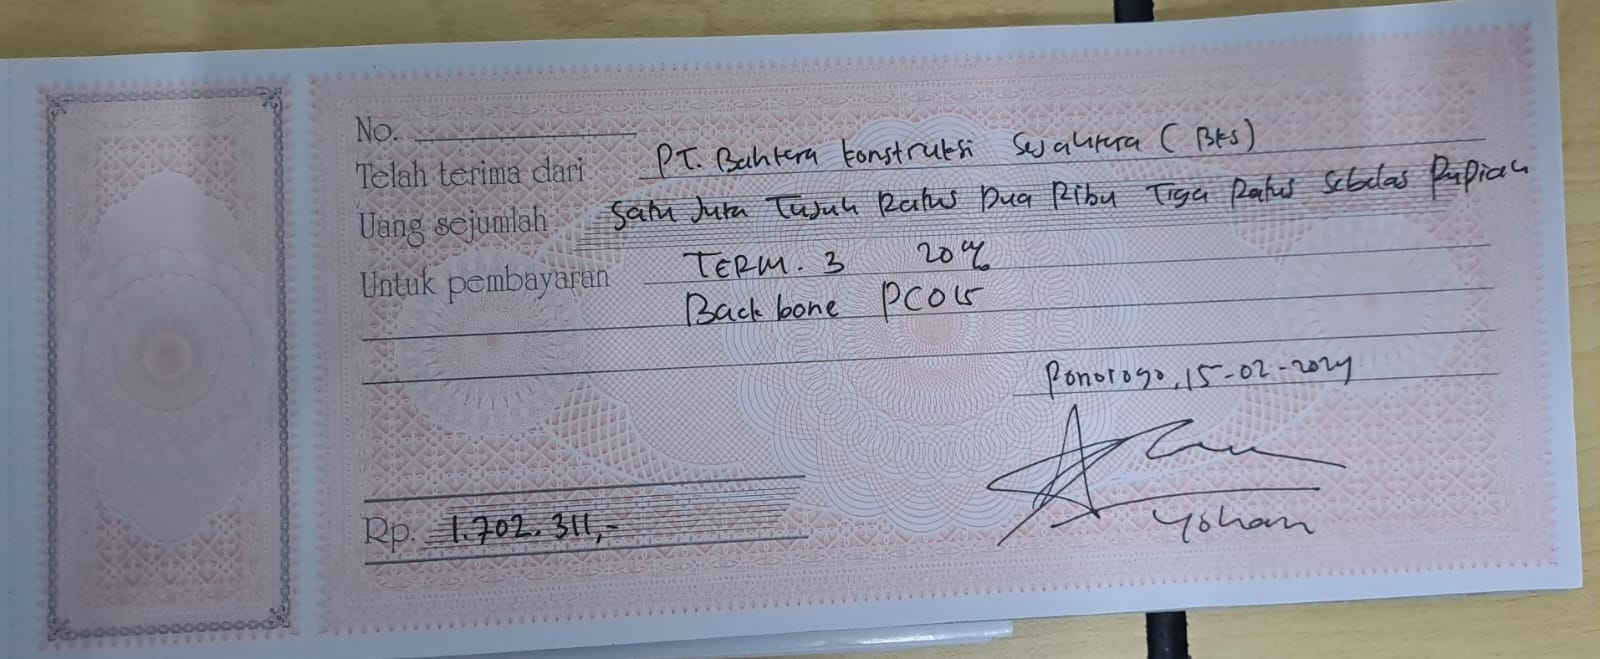 No.
Telah terima dari PT. Bahtera Konstruksi Sejahtera (BKS)
Uang sejumlah Satu Juta Tujuh Ratus Dua Ribu Tiga Ratus Sebelas Rupiah
Untuk pembayaran TERM. 3 20%
Backbone PCO15
Ponorogo, 15-02-2024
Rp. 1.702.311,-
Yohan